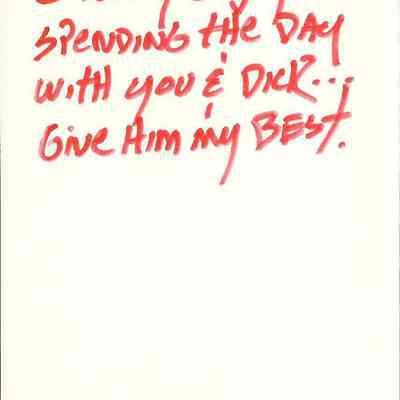 SPENDING the DAY
WITH YOU & DICK...
GIVE HIM MY BEST.